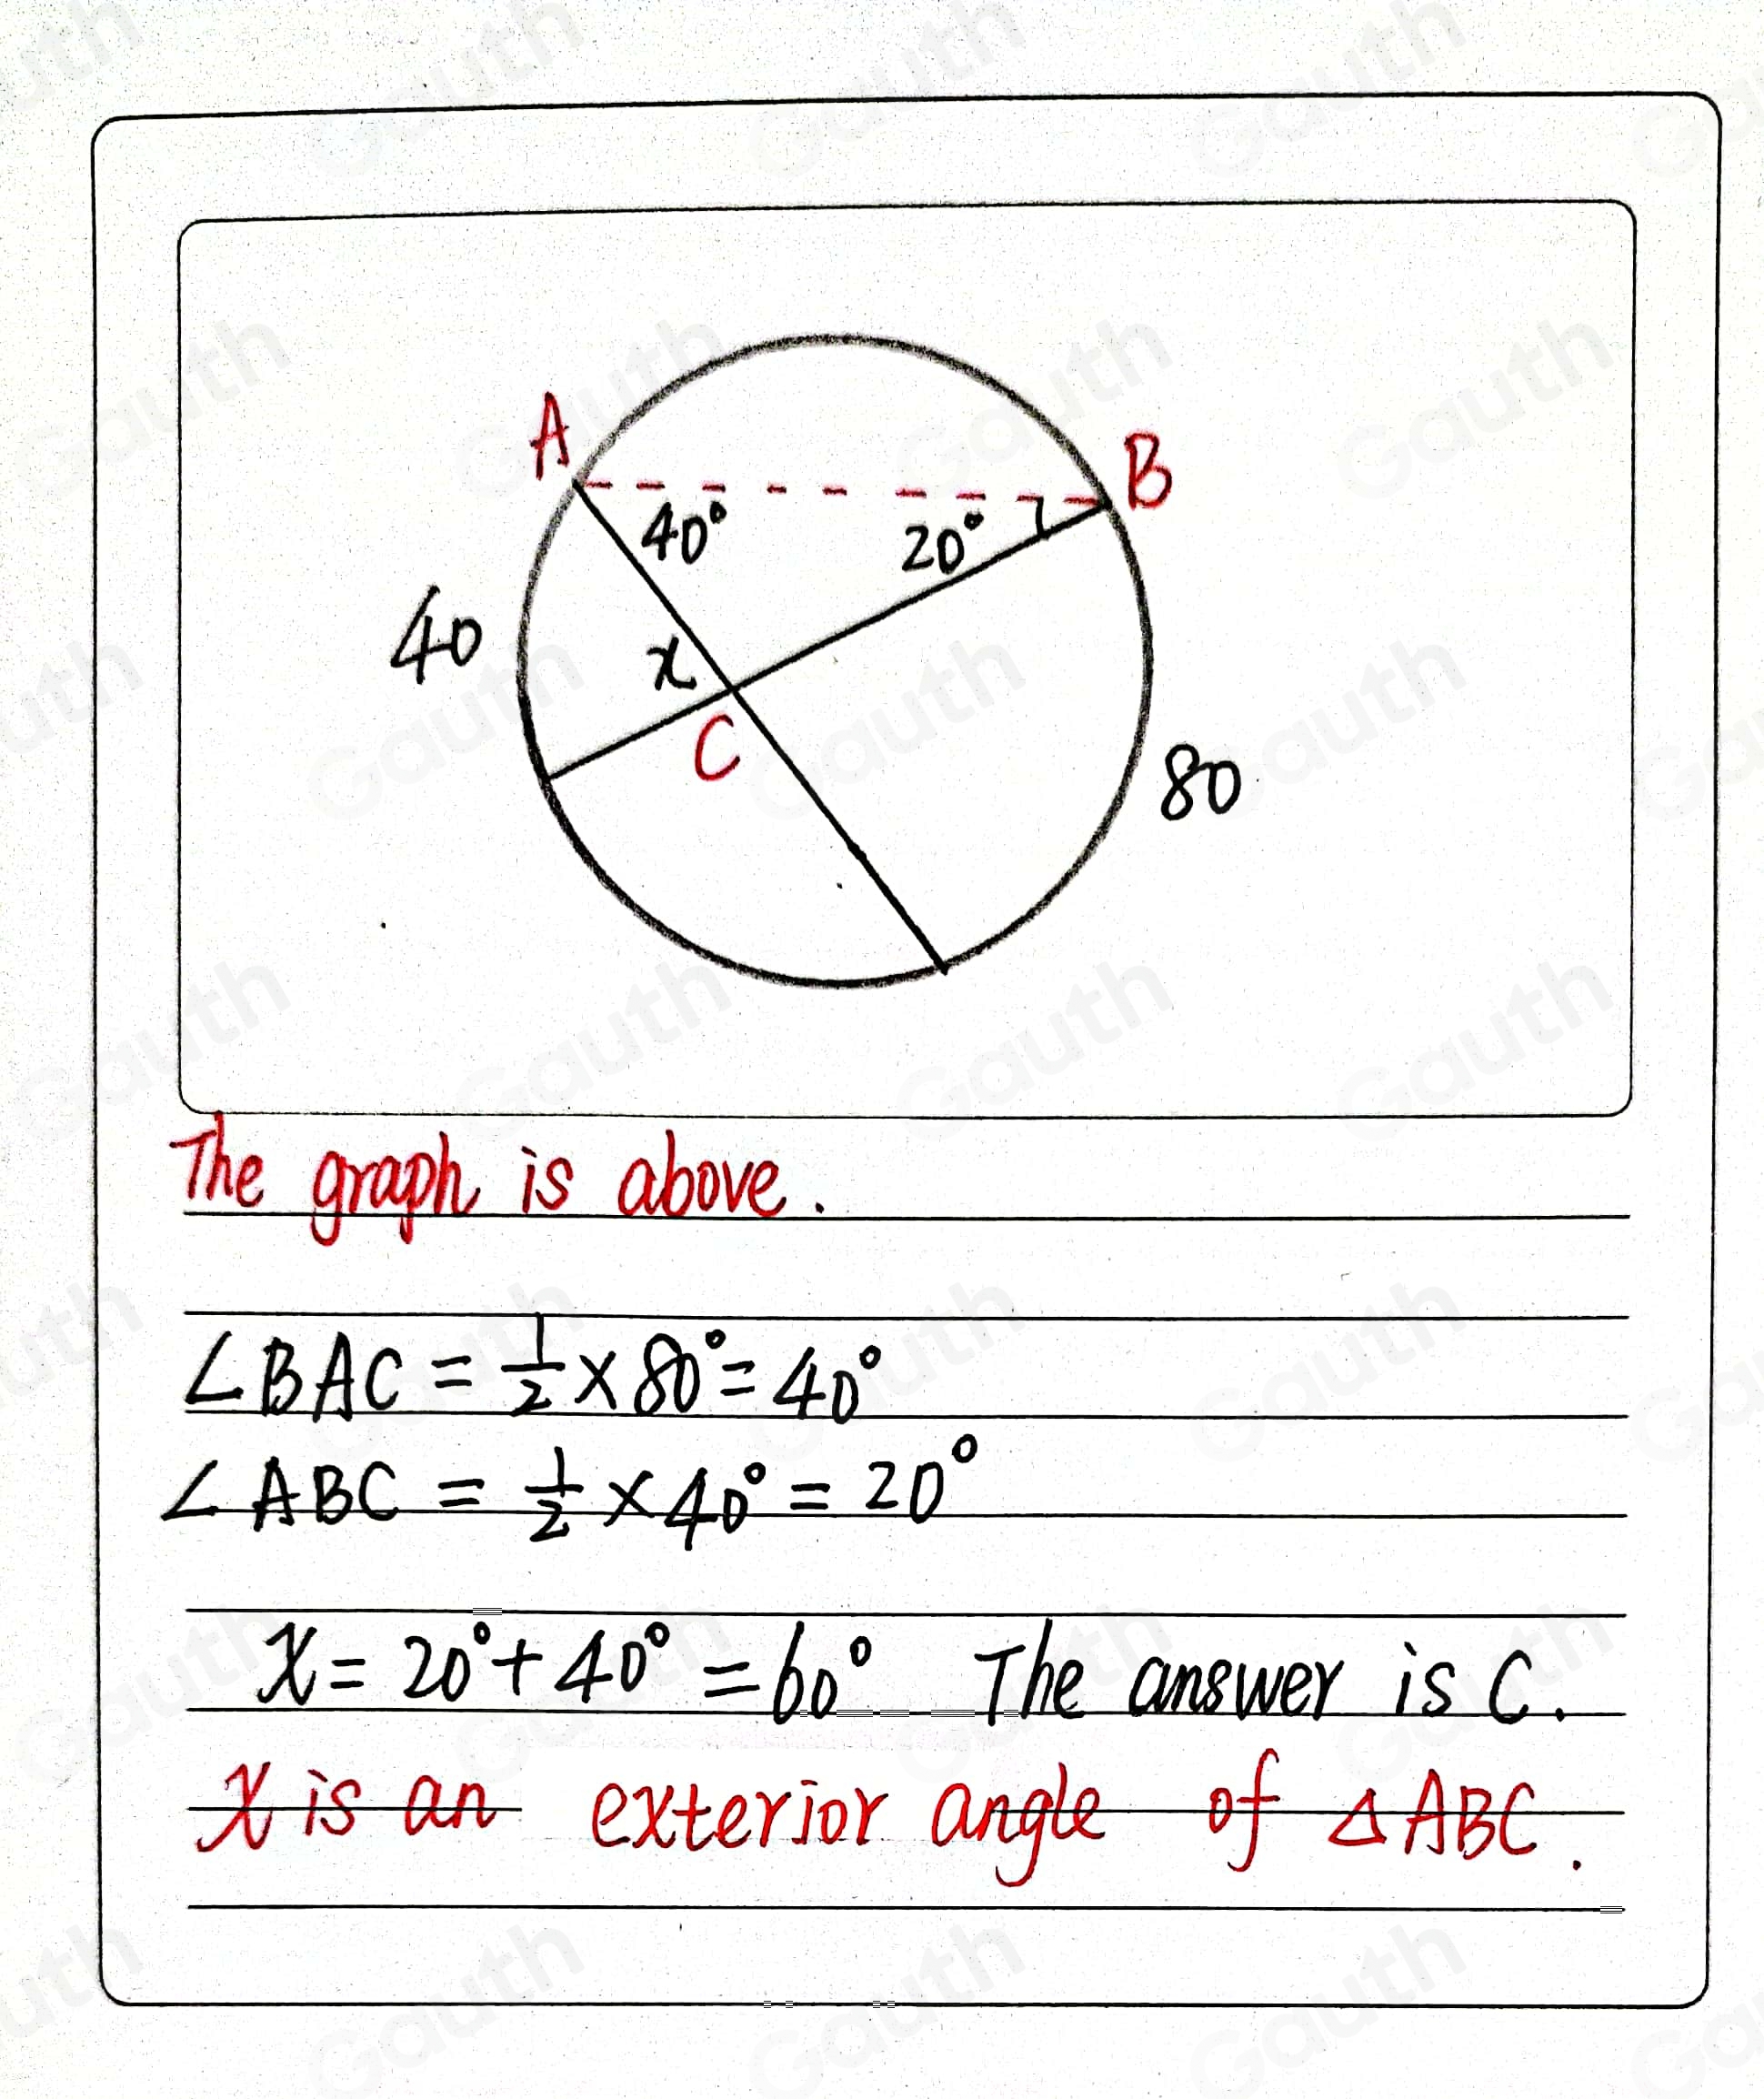 A
B
40°
20°
40
x
C
80
The graph is above.
∠BAC = 1/2 × 80° = 40°
∠ABC = 1/2 × 40° = 20°
x = 20° + 40° = 60° The answer is C.
x is an exterior angle of △ABC.
Gauth